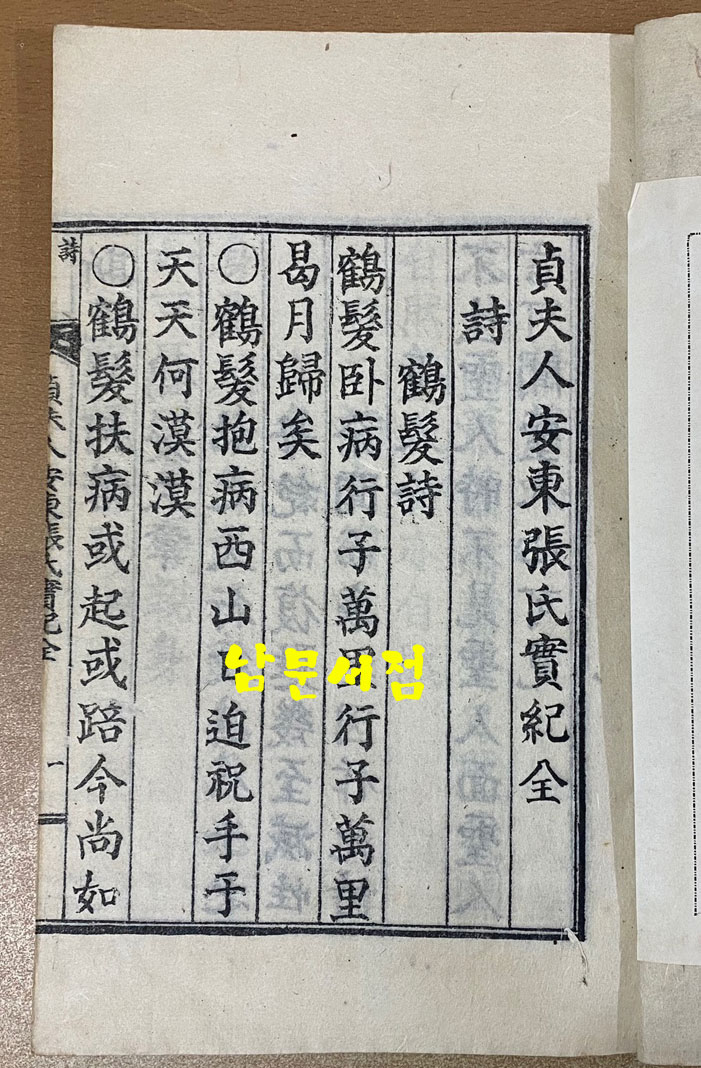 貞夫人安東張氏實紀全
詩
鶴髮詩
鶴髮卧病行子萬里行子萬里
曷月歸矣
○鶴髮抱病西山日迫祝手于
天天何漠漠
○鶴髮扶病或起或踣今尚如
詩
貞夫人安東張氏實紀全
一
남문서점